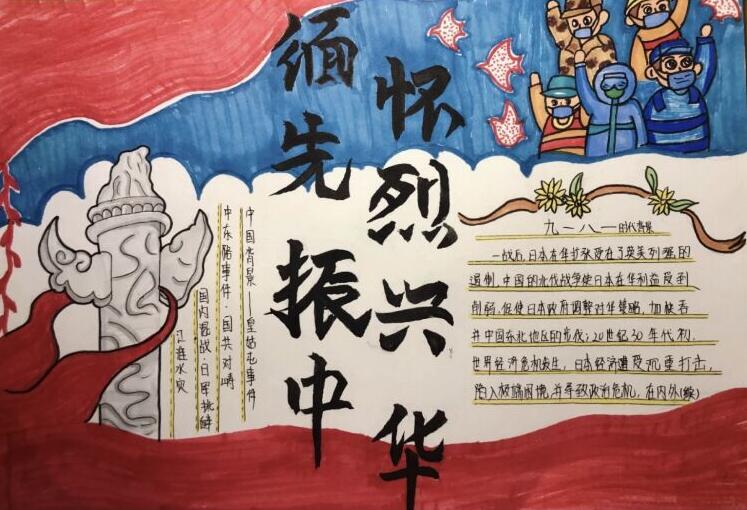 缅怀
先烈
振兴
中华
中国背景——皇姑屯事件
中东路事件·国共对峙
国内混战·日军挑衅
江淮水灾
九一八—时代背景
一战后,日本在华扩张受在了英美列强的
遏制,中国的北伐战争使日本在华利益受到
削弱,促使日本政府调整对华策略,加快吞
并中国东北地区的步伐;20世纪30年代初,
世界经济危机发生,日本经济遭受沉重打击,
陷入极端困境,并导致政治危机,在内外(续)